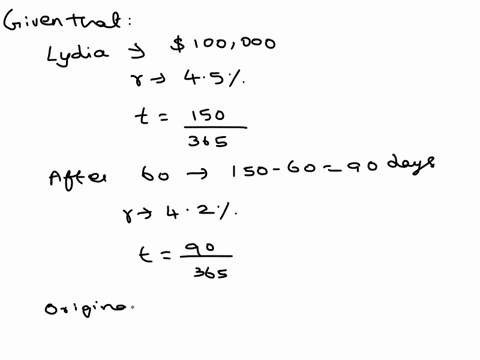 Given that:
Lydia → $100,000
r → 4.5%.
t = 150/365
After 60 → 150-60=90 days
r → 4.2%.
t = 90/365
Origina